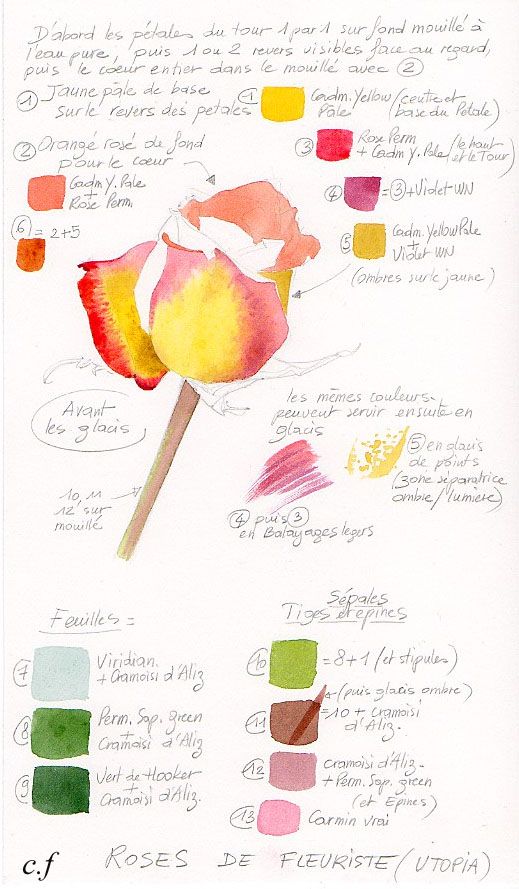 D'abord les pétales du tour 1 par 1 sur fond mouillé à
l'eau pure, puis 1 ou 2 revers visibles face au regard,
puis le coeur entier dans le mouillé avec ②
① Jaune pâle de base
sur le revers des petales
② Orangé rosé de fond
pour le coeur
Cadm Y. Pale
+
Rose Perm.
⑥ = 2+5
① Cadm. Yellow Pâle (centre et
base du Pétale)
③ Rose Perm
+ Cadm Y. Pale (le haut
et le Tour)
④ = ③ + Violet WN
⑤ Cadm. Yellow Pale
+
Violet WN
(ombres sur le jaune)
Avant
les glacis
les mêmes couleurs
peuvent servir ensuite en
glacis
⑤ en glacis
de points
(zone séparatrice
ombre/lumière)
④ puis ③
en Balayages legers
10, 11
12 sur
mouillé
Feuilles =
⑦ Viridian
+ Cramoisi d'Aliz
⑧ Perm. Sap. green
+
Cramoisi d'Aliz
⑨ Vert de Hooker
+
Cramoisi d'Aliz.
Sépales
Tiges et épines
⑩ = 8+1 (et stipules)
(puis glacis ombre)
⑪ = 10 + Cramoisi
d'Aliz.
⑫ Cramoisi d'Aliz.
+ Perm. Sap. green
(et Epines)
⑬ Carmin vrai
c.f
ROSES DE FLEURISTE (UTOPIA)